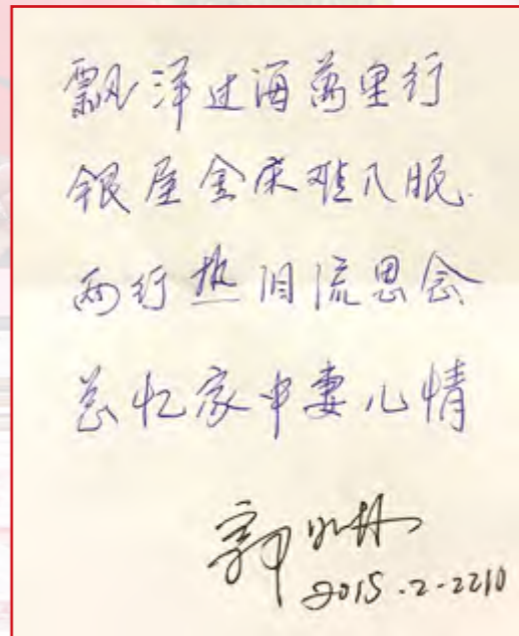 飘洋过海万里行
银屋金床难入眠.
两行热泪流思念
总忆家中妻儿情
郭
2015.2.2210